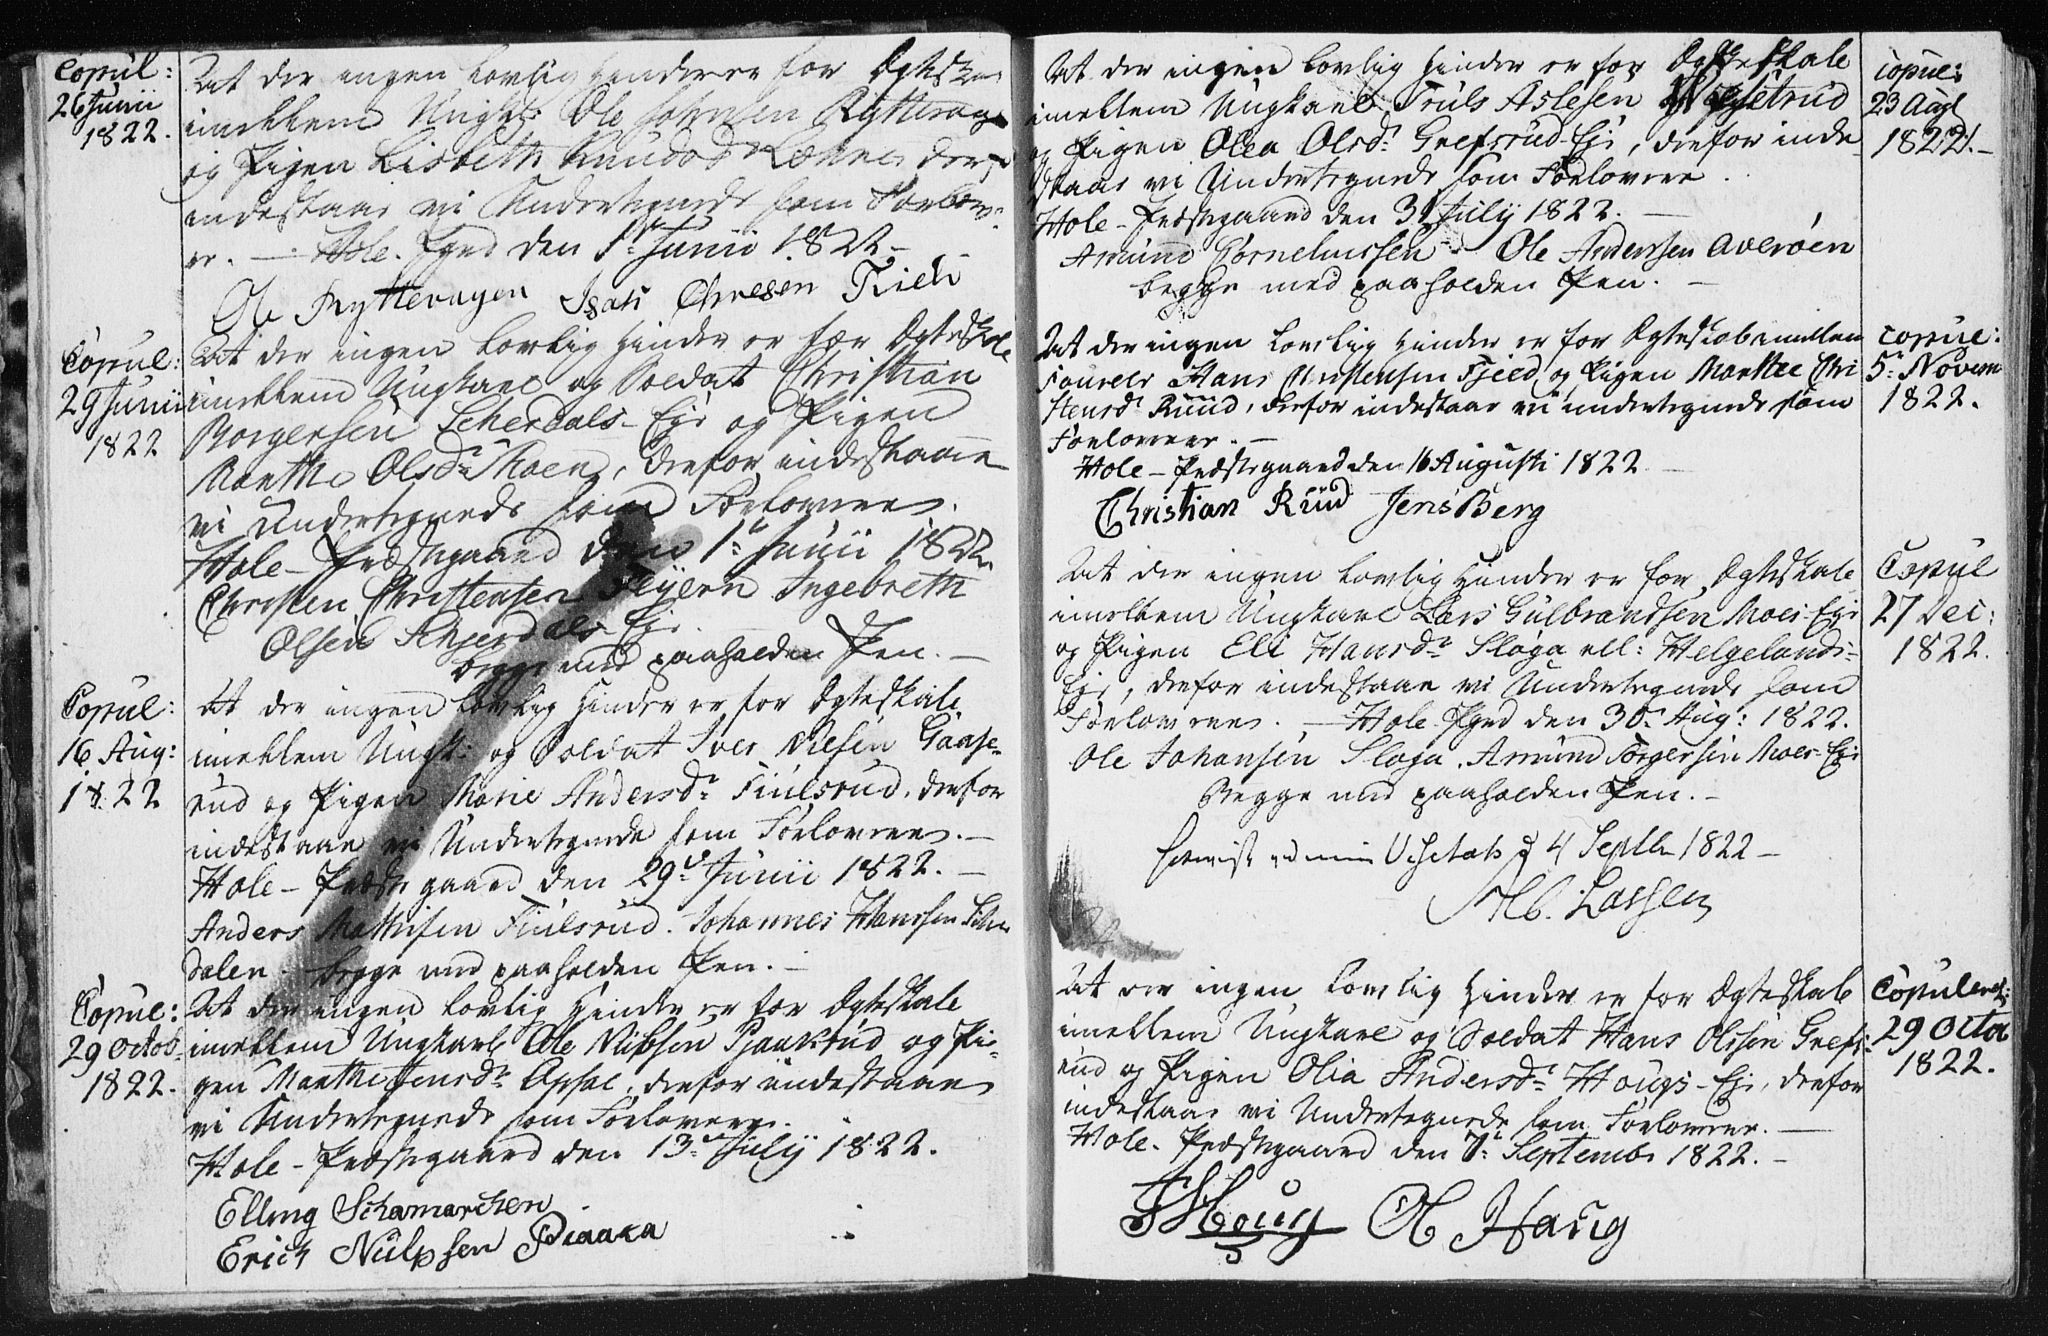 Copul:
26 Junii
1822.
At der ingen lovlig Hinder er for Ægteska
imellem Ungk: Ole Johnsen Rytterag
og Pigen Lisbeth Knudsd. derfor
indestaar vi Undertegnede som Forlov-
er. — Hole Pgrd den 1te Junii 1822 –
Ole Rytteragen Isak Chresen
Copul:
29 Junii
1822
At der ingen lovlig Hinder er for Ægteskab
imellem Ungkarl og Soldat Christian
Borgersen Scherdals-Eje og Pigen
Marthe Olsdr Moen, derfor indestaae
vi Undertegnede som Forlovere.
Hole – Præstegaard den 1te Junii 1822
Christen Christensen Ingebreth
Olsen Scherdals Eje
begge med paaholden Pen. —
Copul:
16 Aug:
1822
At der ingen lovlig Hinder er for Ægteskab
imellem Ungk: og Soldat Iver Nilsen Gaase-
rud og Pigen Marie Andersdr Fiulsrud, derfor
indestaae vi Undertegnede som Forlovere. –
Hole – Præstegaard den 29de Junii 1822. –
Anders Mathisen Fiulsrud. Johannes Hansen
dalen. begge med paaholden Pen. –
Copul:
29 Octob
1822.
At der ingen lovlig Hinder er for Ægteskab
imellem Ungkarl Ole Nilsen Pjaaksrud og Pi-
gen Marthe Jensdr Opsal, derfor indestaae
vi Undertegnede som Forlovere.
Hole – Præstegaard den 13de July 1822.
Elling Schamarchen
Erich Nielssen Piaaka
At der ingen lovlig Hinder er for Ægteskab
imellem Ungkarl Truls Aslesen
og Pigen Olea Olsdr Grefsrud-Eje, derfor inde-
staar vi Undertegnede som Forlovere.
Hole – Præstegaard den 31 July 1822. —
Amund Cornelinssen – Ole Andersen Averøen
begge med paaholden Pen. –
copul:
23 Augt
1822. –
At der ingen lovlig Hinder er for Ægteskab imellem
Hans Christensen Fjeld og Pigen Marthe Chri
stensdr Ruud, derfor indestaar vi undertegnede som
Forlovere. –
Hole – Præstegaard den 16 Augusti 1822 –
Christian Ruud Jens Berg
copul:
5te Novem
1822.
At der ingen lovlig Hinder er for Ægteskab
imellem Ungkarl Lars Gulbrandsen Moes-Eje
og Pigen Eli Hansdr Sløga ell: Helgelands-
Eje, derfor indestaae vi Undertegnede som
Forlovere. – Hole Pgrd den 30te Aug: 1822.
Ole Johansen Sløga. Amund Torgersen Moes-Eje
Begge med paaholden Pen. –
Copul
27 Dec:
1822.
min Visitats d 4 Septbr 1822 –
Lassen
At der ingen lovlig Hinder er for Ægteskab
imellem Ungkarl og Soldat Hans Olssen Grefs-
rud og Pigen Olia Andersdr Hougs-Eje, derfor
indestaae vi Undertegnede som Forlovere. —
Hole. Præstegaard den 7de Septembr 1822. –
Houg O Haug
Copuleret:
29 Octo
1822.